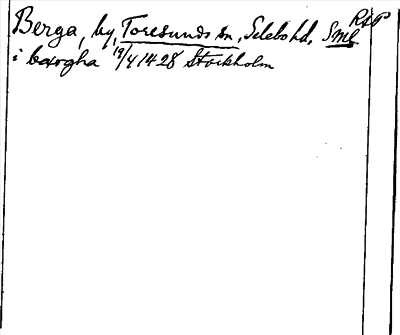 Berga, by, Toresunds sn, Selebo hd. Sml RAP
i bærgha 19/4 1428 Stockholm